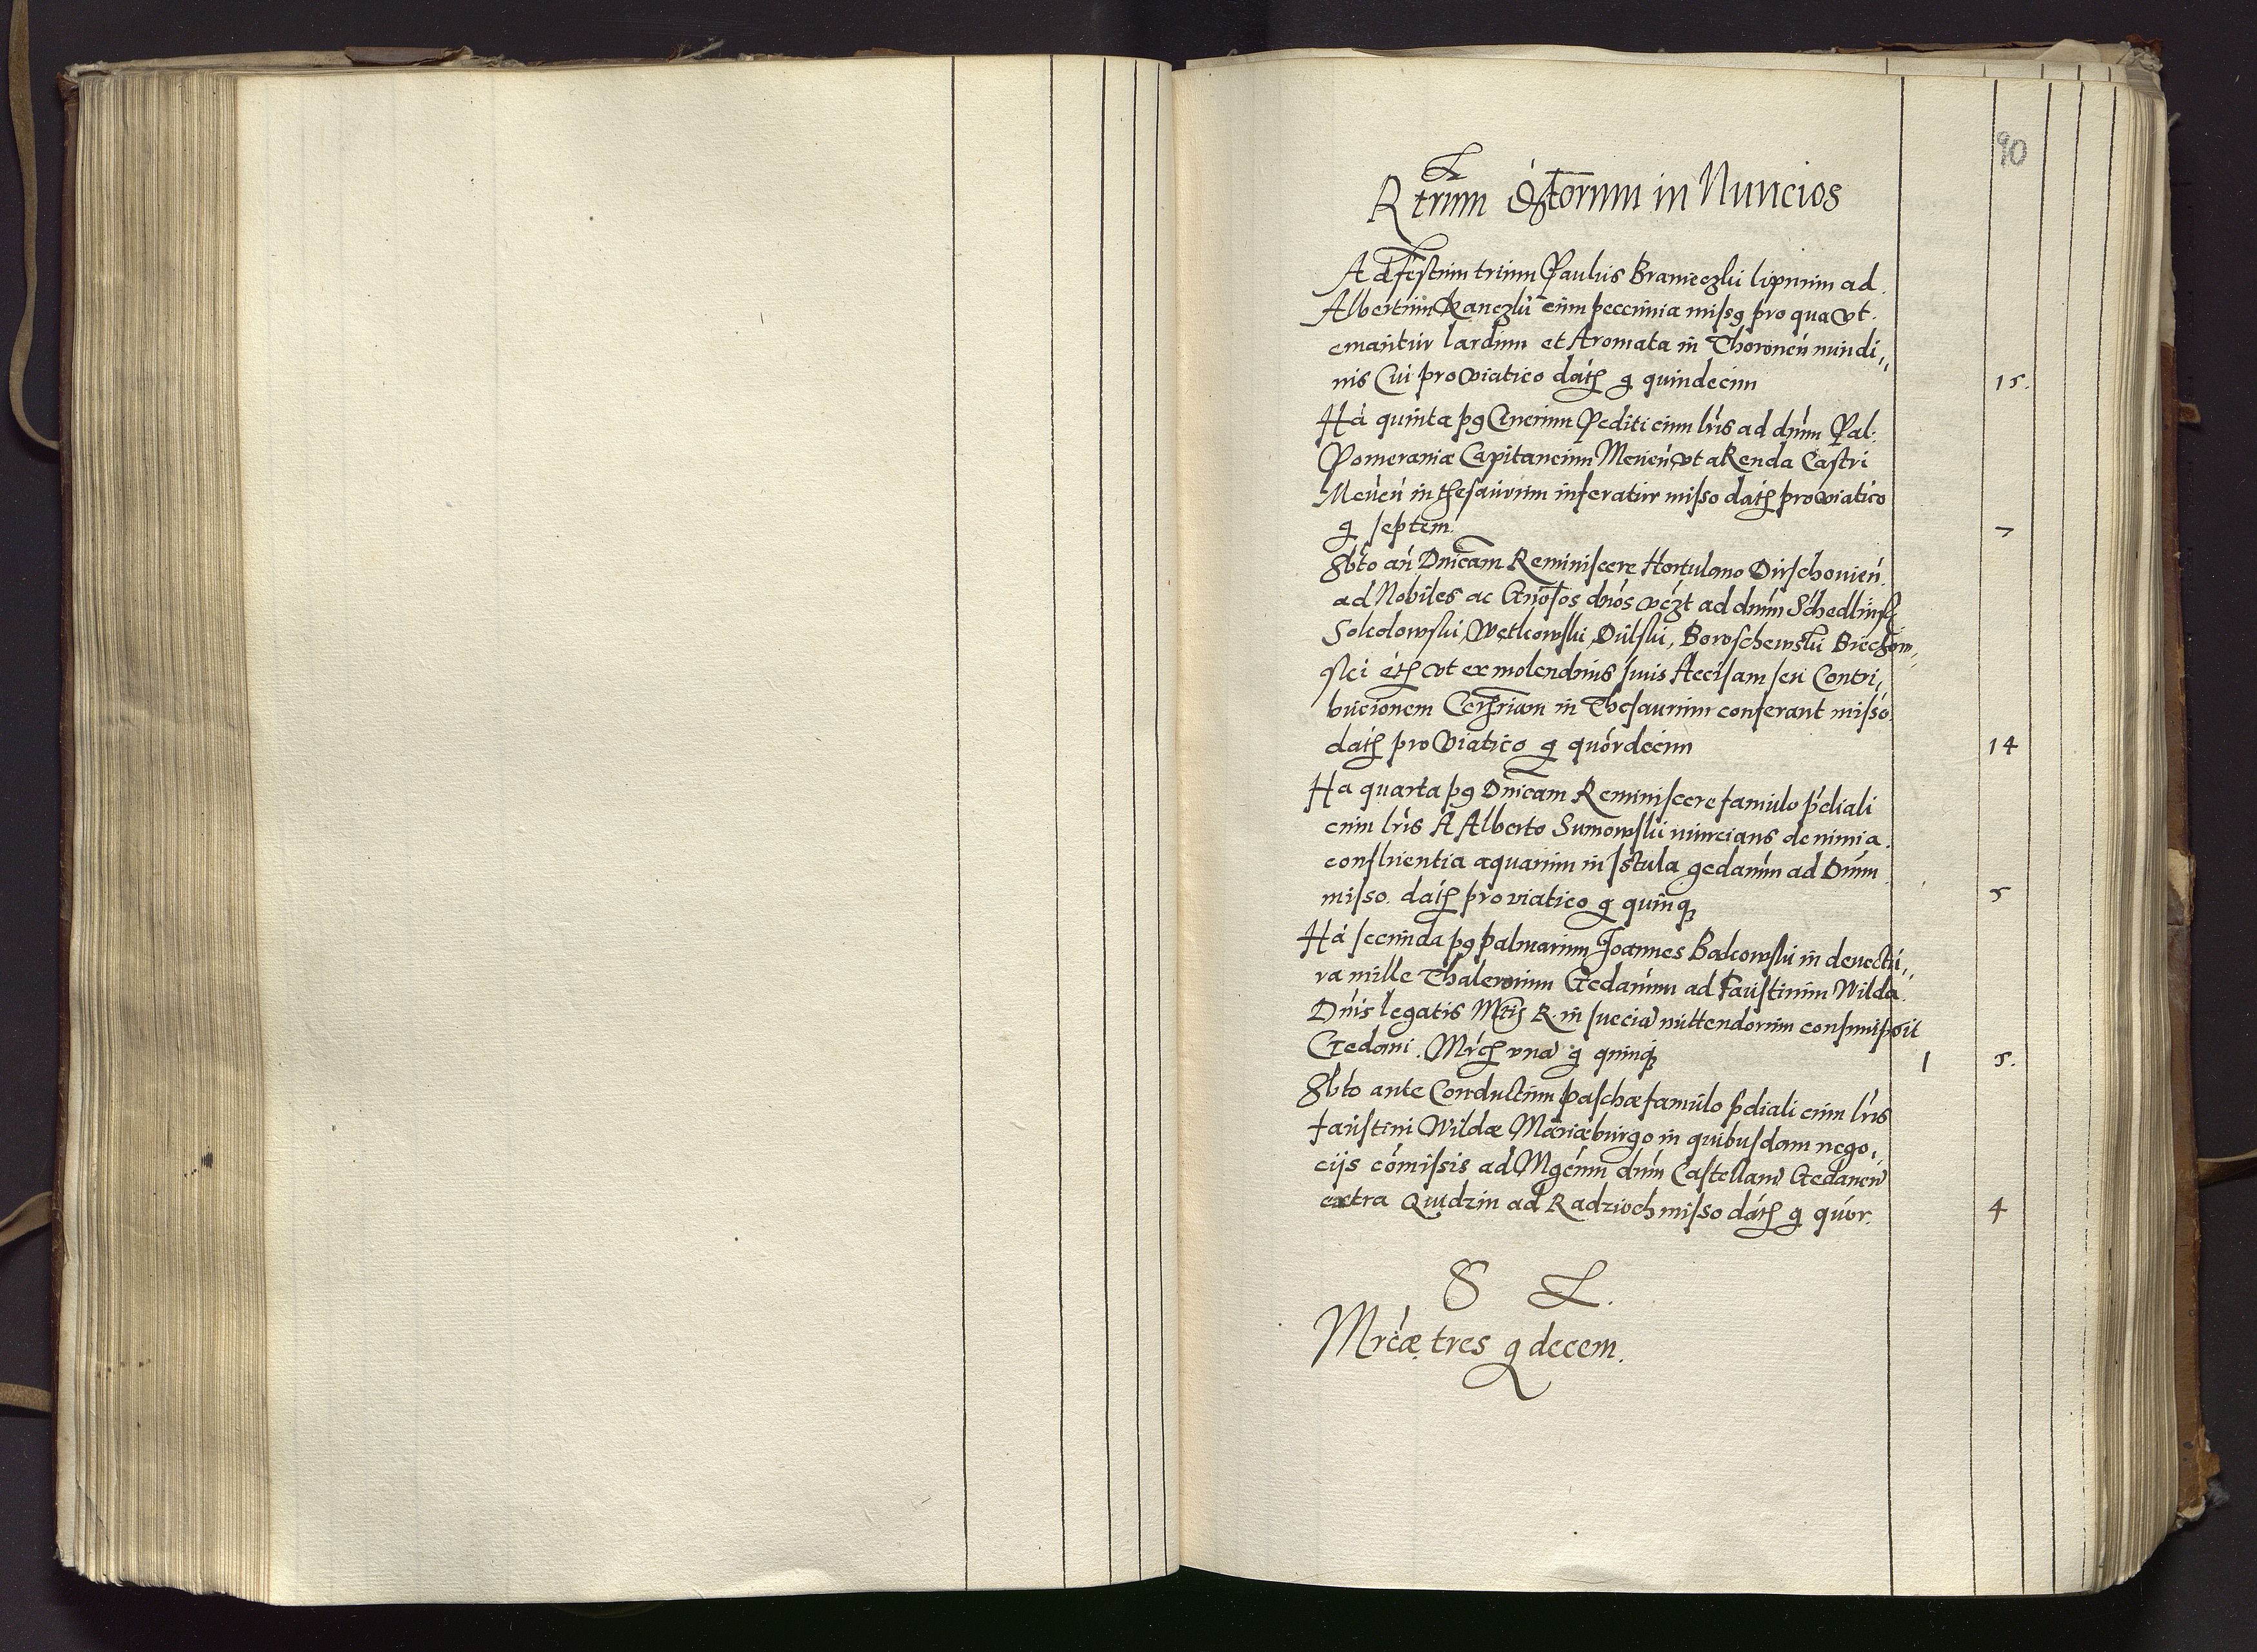 90
Rtrum ... in Nuncios
Ad festum trium Paulus Branieczki lipnum ad
Albertum Kanczki cum peccunia missg pro qua vt
emantur lardum et Aromata in Thoronen nundi,,
nis Cui pro viatico datg g quindecim 15.
Ha quinta pg Cinerum Pediti cum lris ad dnm Pal:
Pomeraniæ Capitaneum Meuen vt aRenda Castri
Meuen in thesaurum inferatur misso datg pro viatico
g septem. 7
Sbto an Dnicam Reminiscere Hortulano Dirschouien
ad Nobiles ac Gnosos dnos vczt ad dnm Schedlinsk
Sokolowski, Wetkowski, Dulski, Boroschewski
ski etg vt ex molendinis suis Accisam seu Contri,
bucionem in Thesaurum conferant misso
datg pro Viatico g quordecim 14
Ha quarta pg Dnicam Reminiscere famulo pdiali
cum lris A Alberto Sumowski nuncians de nimia
confluentia aquarum in Istula gedanum ad Dnm
misso. datg pro viatico g quinq 5
Ha secunda pg palmarum Joannes Balcowski in deuectu,,
ra mille Thalerorum Gedanum ad Faustinum Wilda
Dnis legatis Mtis R. in sueciam mittendorum consumpsit
Gedani. Mrcg vna g quinq 1 5.
Sbto ante Conductum paschæ famulo pdiali cum lris
faustini Wildæ Mariæburgo in quibusdam nego,
cijs comissis ad Mgcnm dnm Castellanum Gedanen
extra Quidzin ad Radzioch misso datg g quor. 4
S L.
Mrcæ tres g decem.